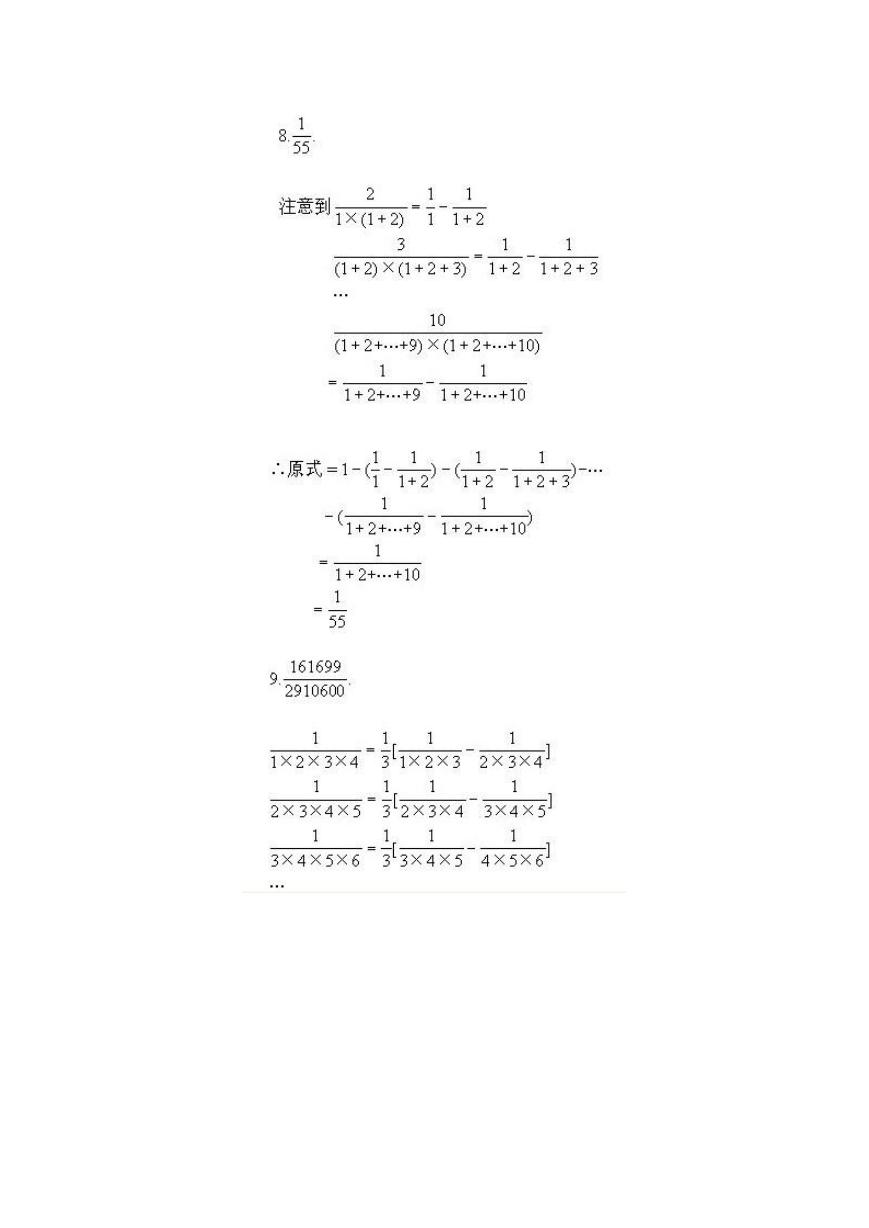 8. $\frac{1}{55}$.
注意到 $\frac{2}{1×(1+2)}=\frac{1}{1}-\frac{1}{1+2}$
$\frac{3}{(1+2)×(1+2+3)}=\frac{1}{1+2}-\frac{1}{1+2+3}$
…
$\frac{10}{(1+2+…+9)×(1+2+…+10)}$
$=\frac{1}{1+2+…+9}-\frac{1}{1+2+…+10}$
∴原式 $=1-(\frac{1}{1}-\frac{1}{1+2})-(\frac{1}{1+2}-\frac{1}{1+2+3})-…$
$-(\frac{1}{1+2+…+9}-\frac{1}{1+2+…+10})$
$=\frac{1}{1+2+…+10}$
$=\frac{1}{55}$
9. $\frac{161699}{2910600}$.
$\frac{1}{1×2×3×4}=\frac{1}{3}[\frac{1}{1×2×3}-\frac{1}{2×3×4}]$
$\frac{1}{2×3×4×5}=\frac{1}{3}[\frac{1}{2×3×4}-\frac{1}{3×4×5}]$
$\frac{1}{3×4×5×6}=\frac{1}{3}[\frac{1}{3×4×5}-\frac{1}{4×5×6}]$
…